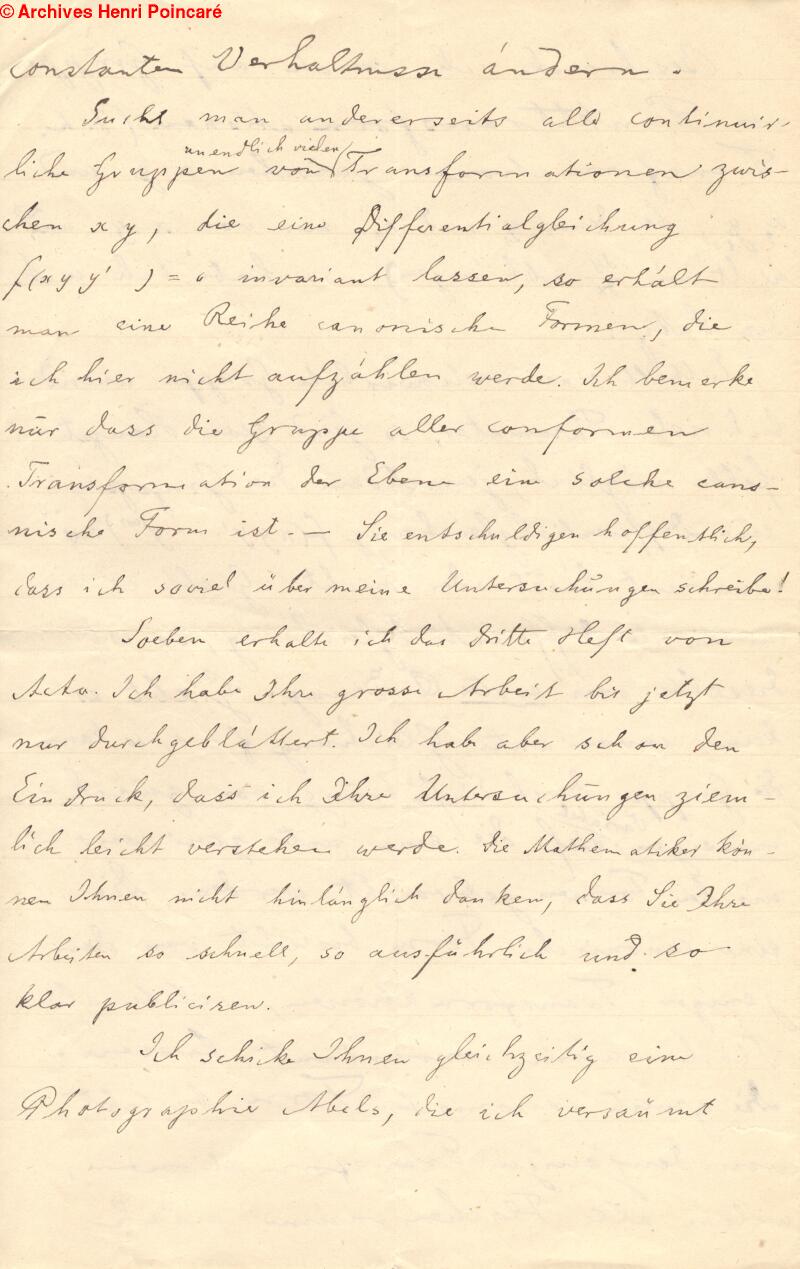 © Archives Henri Poincaré
constanten Verhältnisse ändern.
Sucht man andererseits alle continuir-
liche Gruppen von unendlich vielen Transformationen zwis-
chen x y, die eine Differentialgleichung
f(x y y' ) = o invariant lassen, so erhält
man eine Reihe canonische Formen, die
ich hier nicht aufzählen werde. Ich bemerke
nur dass die Gruppe aller conformen
Transformation der Ebene eine solche cano-
nische Form ist. — Sie entschuldigen hoffentlich,
dass ich soviel über meine Untersuchungen schreibe!
Soeben erhalte ich das dritte Heft von
Acta. Ich habe Ihre grosse Arbeit bis jetzt
nur durchgeblättert. Ich habe aber schon den
Eindruck, dass ich Ihre Untersuchungen ziem-
lich leicht verstehen werde. Die Mathematiker kön-
nen Ihnen nicht hinlänglich danken, dass Sie Ihre
Arbeiten so schnell, so ausführlich und so
klar publiciren.
Ich schicke Ihnen gleichzeitig eine
Photographie Abels, die ich versäumt